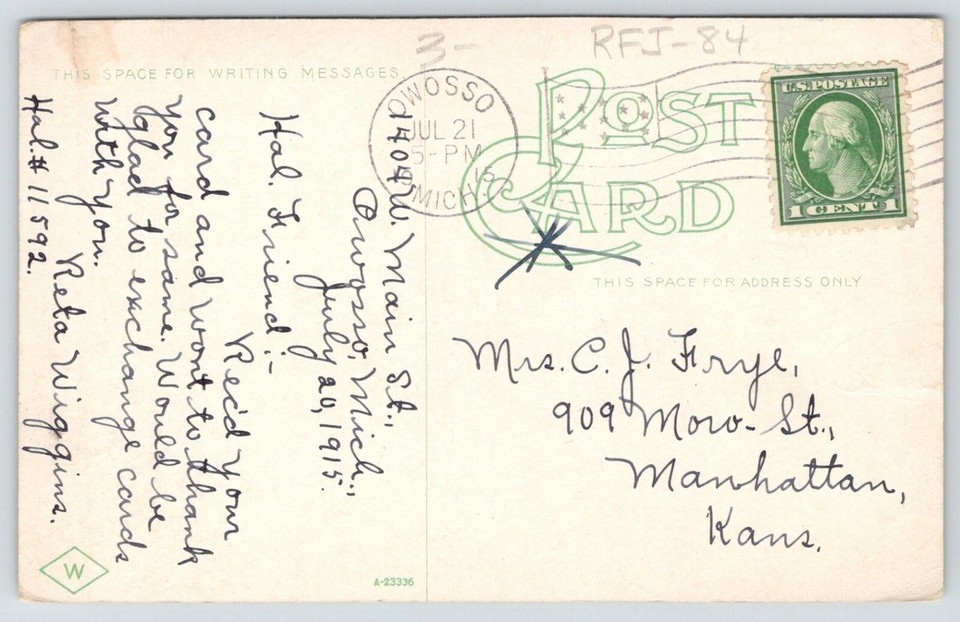 3-
RFJ-84
THIS SPACE FOR WRITING MESSAGES.
OWOSSO
JUL 21
5-PM
15
MICH.
POST
CARD
U.S. POSTAGE
1 CENT 1
THIS SPACE FOR ADDRESS ONLY
1404 W. Main St.,
Owosso, Mich.,
July 20, 1915.
Hal. Friend:-
Rec'd your
card and wont to thank
you for same. Would be
glad to exchange cards
with you.
Reta Wiggins.
Hal. # 11592.
Mrs. C. J. Frye,
909 Moro-St.,
Manhattan,
Kans.
W
A-23336